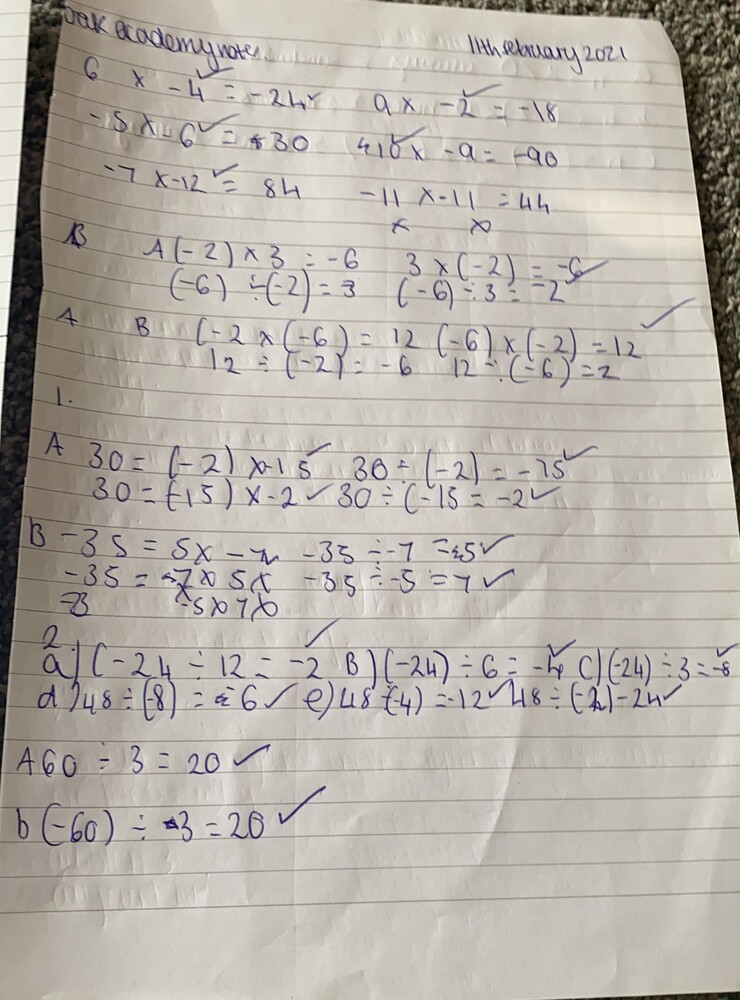 oak academy notes. 11th february 2021
6 x -4 = -24 9x -2 = -18
-5 x -6 = 30 10x -9 = -90
-7 x -12 = 84 -11 x -11 = 44
x x
B A (-2) x 3 = -6 3 x (-2) = -6
(-6) ÷ (-2) = 3 (-6) ÷ 3 = -2
A B (-2 x (-6) = 12 (-6) x (-2) = 12
12 ÷ (-2) = -6 12 ÷ (-6) = 2
1.
A 30 = (-2) x -15 30 ÷ (-2) = -15
30 = (-15) x -2 30 ÷ (-15 = -2
B -35 = 5x -7 -35 ÷ -7 = 5
-35 = -7 x 5x -35 ÷ -5 = 7
-5 x 7
2.
a) (-24 ÷ 12 = -2 B) (-24) ÷ 6 = -4 C) (-24) ÷ 3 = -8
d) 48 ÷ (-8) = -6 e) 48 ÷ (-4) = -12 48 ÷ (-2) -24
A 60 ÷ 3 = 20
b (-60) ÷ -3 = 20